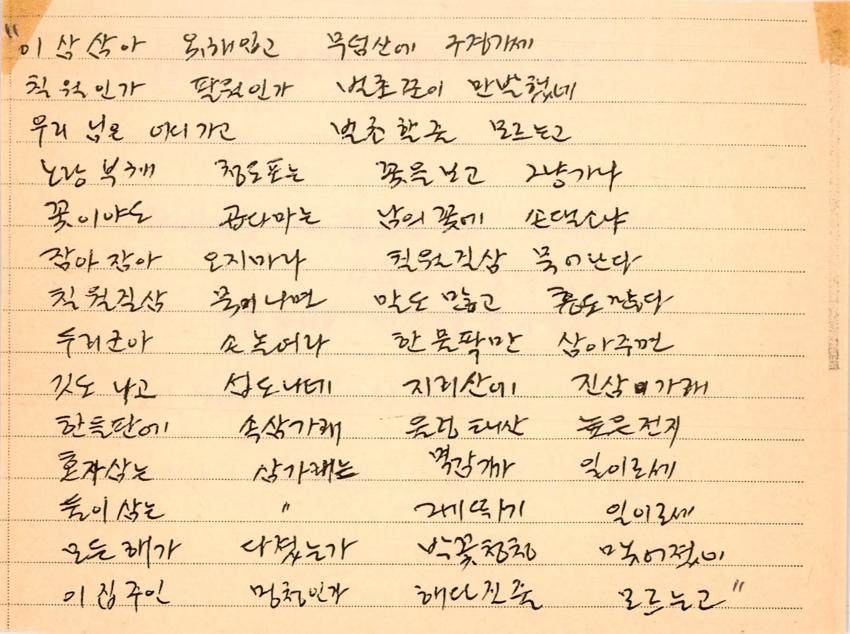 "이 삼 삼아 옷해입고 무덤산에 구경가제
칠월인가 팔월인가 벌초꾼이 만발했네
우리 님은 어디가고 벌초할줄 모르는고
노랑 부채 청도포는 꽃을보고 그냥가나
꽃이야도 곱다마는 남의 꽃에 손댈소냐
잠아 잠아 오지마라 칠월길삼 묵어난다
칠월길삼 묵어나면 말도 많고 흉도많다
두리군아 손놀여라 한물팍만 삼아주면
깃도 나고 섭도나네 지리산에 진삼가래
한들판에 속삼가래 태산 높은전지
혼자삼는 삼가래는 일이로세
둘이 삼는 〃 그네뛰기 일이로세
오든해가 다졌는가 박꽃청청
이집주인 멍청인가 해다진줄 모르는고"